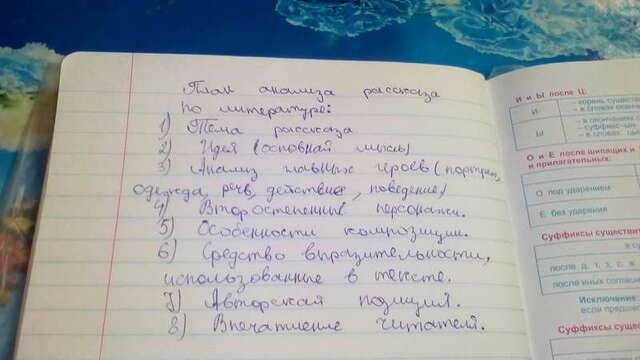 План анализа рассказа
по литературе:
1) Тема рассказа
2) Идея (основная мысль)
3) Анализ главных героев (портрет,
одежда, речь, действие, поведение)
4) Второстепенные персонажи.
5) Особенности композиции.
6) Средство выразительности,
использованные в тексте.
7) Авторская позиция.
8) Впечатление читателя.
И и Ы после Ц:
И
– корень существ
– в словах оканч
Ы
– в окончаниях
– суффикс -ын-
– в словах: цы
О и Е после шипящих и
и прилагательных:
О под ударением
Е без ударения
Суффиксы существит
после д, т, з, с, ж
после иных согласн
Исключение
если предшес
Суффиксы сущес